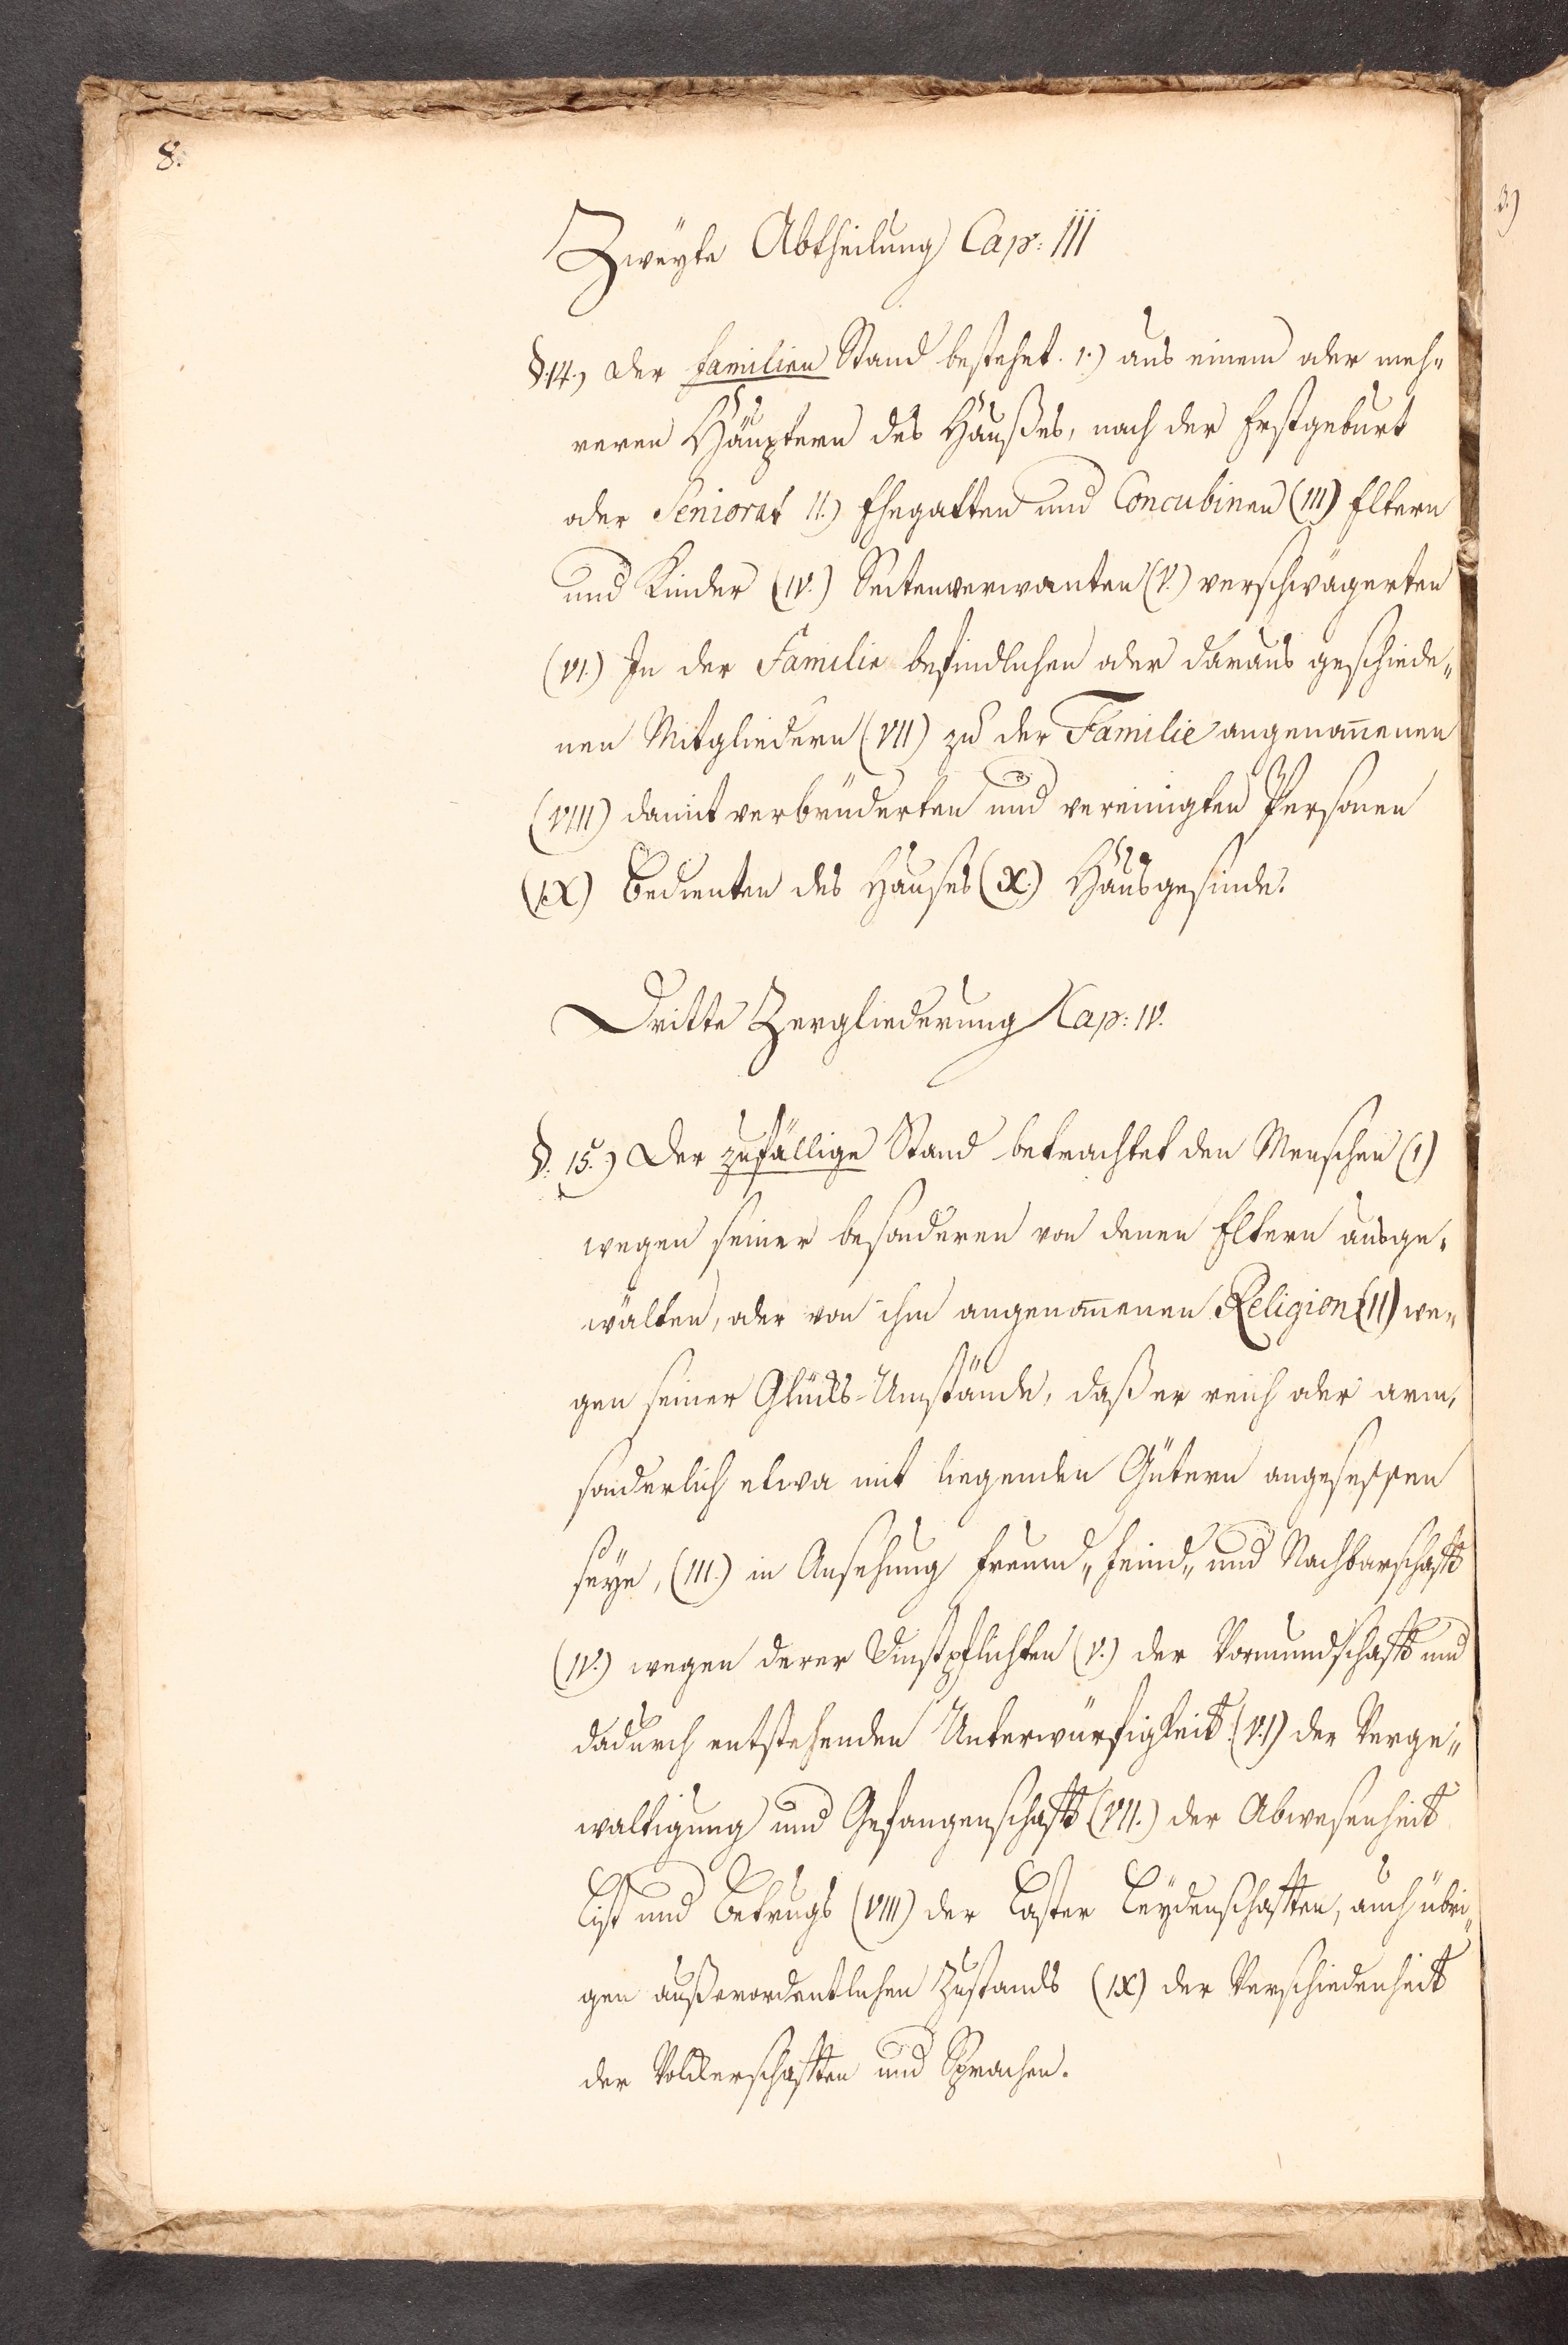 8.
Zweyte Abtheilung Cap: III
§.14., der familien Stand bestehet. 1.) aus einem oder meh„
reren Häuptern des Haußes, nach der Erstgeburt
oder Seniorat II.) Ehegatten und Concubinen (III) Eltern
und Kinder (IV.) Seitenverwanten (V.) verschwägerten
(VI.) In der Familie befindlichen oder daraus geschiede„
nen Mitgliedern (VII) zu der Familie angenom̄enen
(VIII) damit verbrüderten und vereinigten Personen
(IX) Bedienten des Hauses (X.) Hausgesinde.
Dritte Zergliederung Cap: IV.
§. 15.) Der zufällige Stand betrachtet den Menschen (1)
wegen seiner besonderen von denen Eltern ausge„
wälten, oder von ihm angenom̄enen Religion (II) we„
gen seiner Glücks-Umstände, daß er reich oder arm,
sonderlich etwa mit liegenden Gütern angesessen
seye, (III.) in Ansehung Freund„ Feind„ und Nachbarschafft
(IV.) wegen derer Dinstpflichten (V.) der Vormundschafft und
dadurch entstehenden Unterwürfigkeit. (VI) der Verge„
waltigung und Gefangenschafft (VII.) der Abwesenheit
List und Betrugs (VIII) der Laster Leydenschafften, auch übri„
gen außerordentlichen Zustands (IX) der Verschiedenheit
der Volckerschafften und Sprachen.
3.)